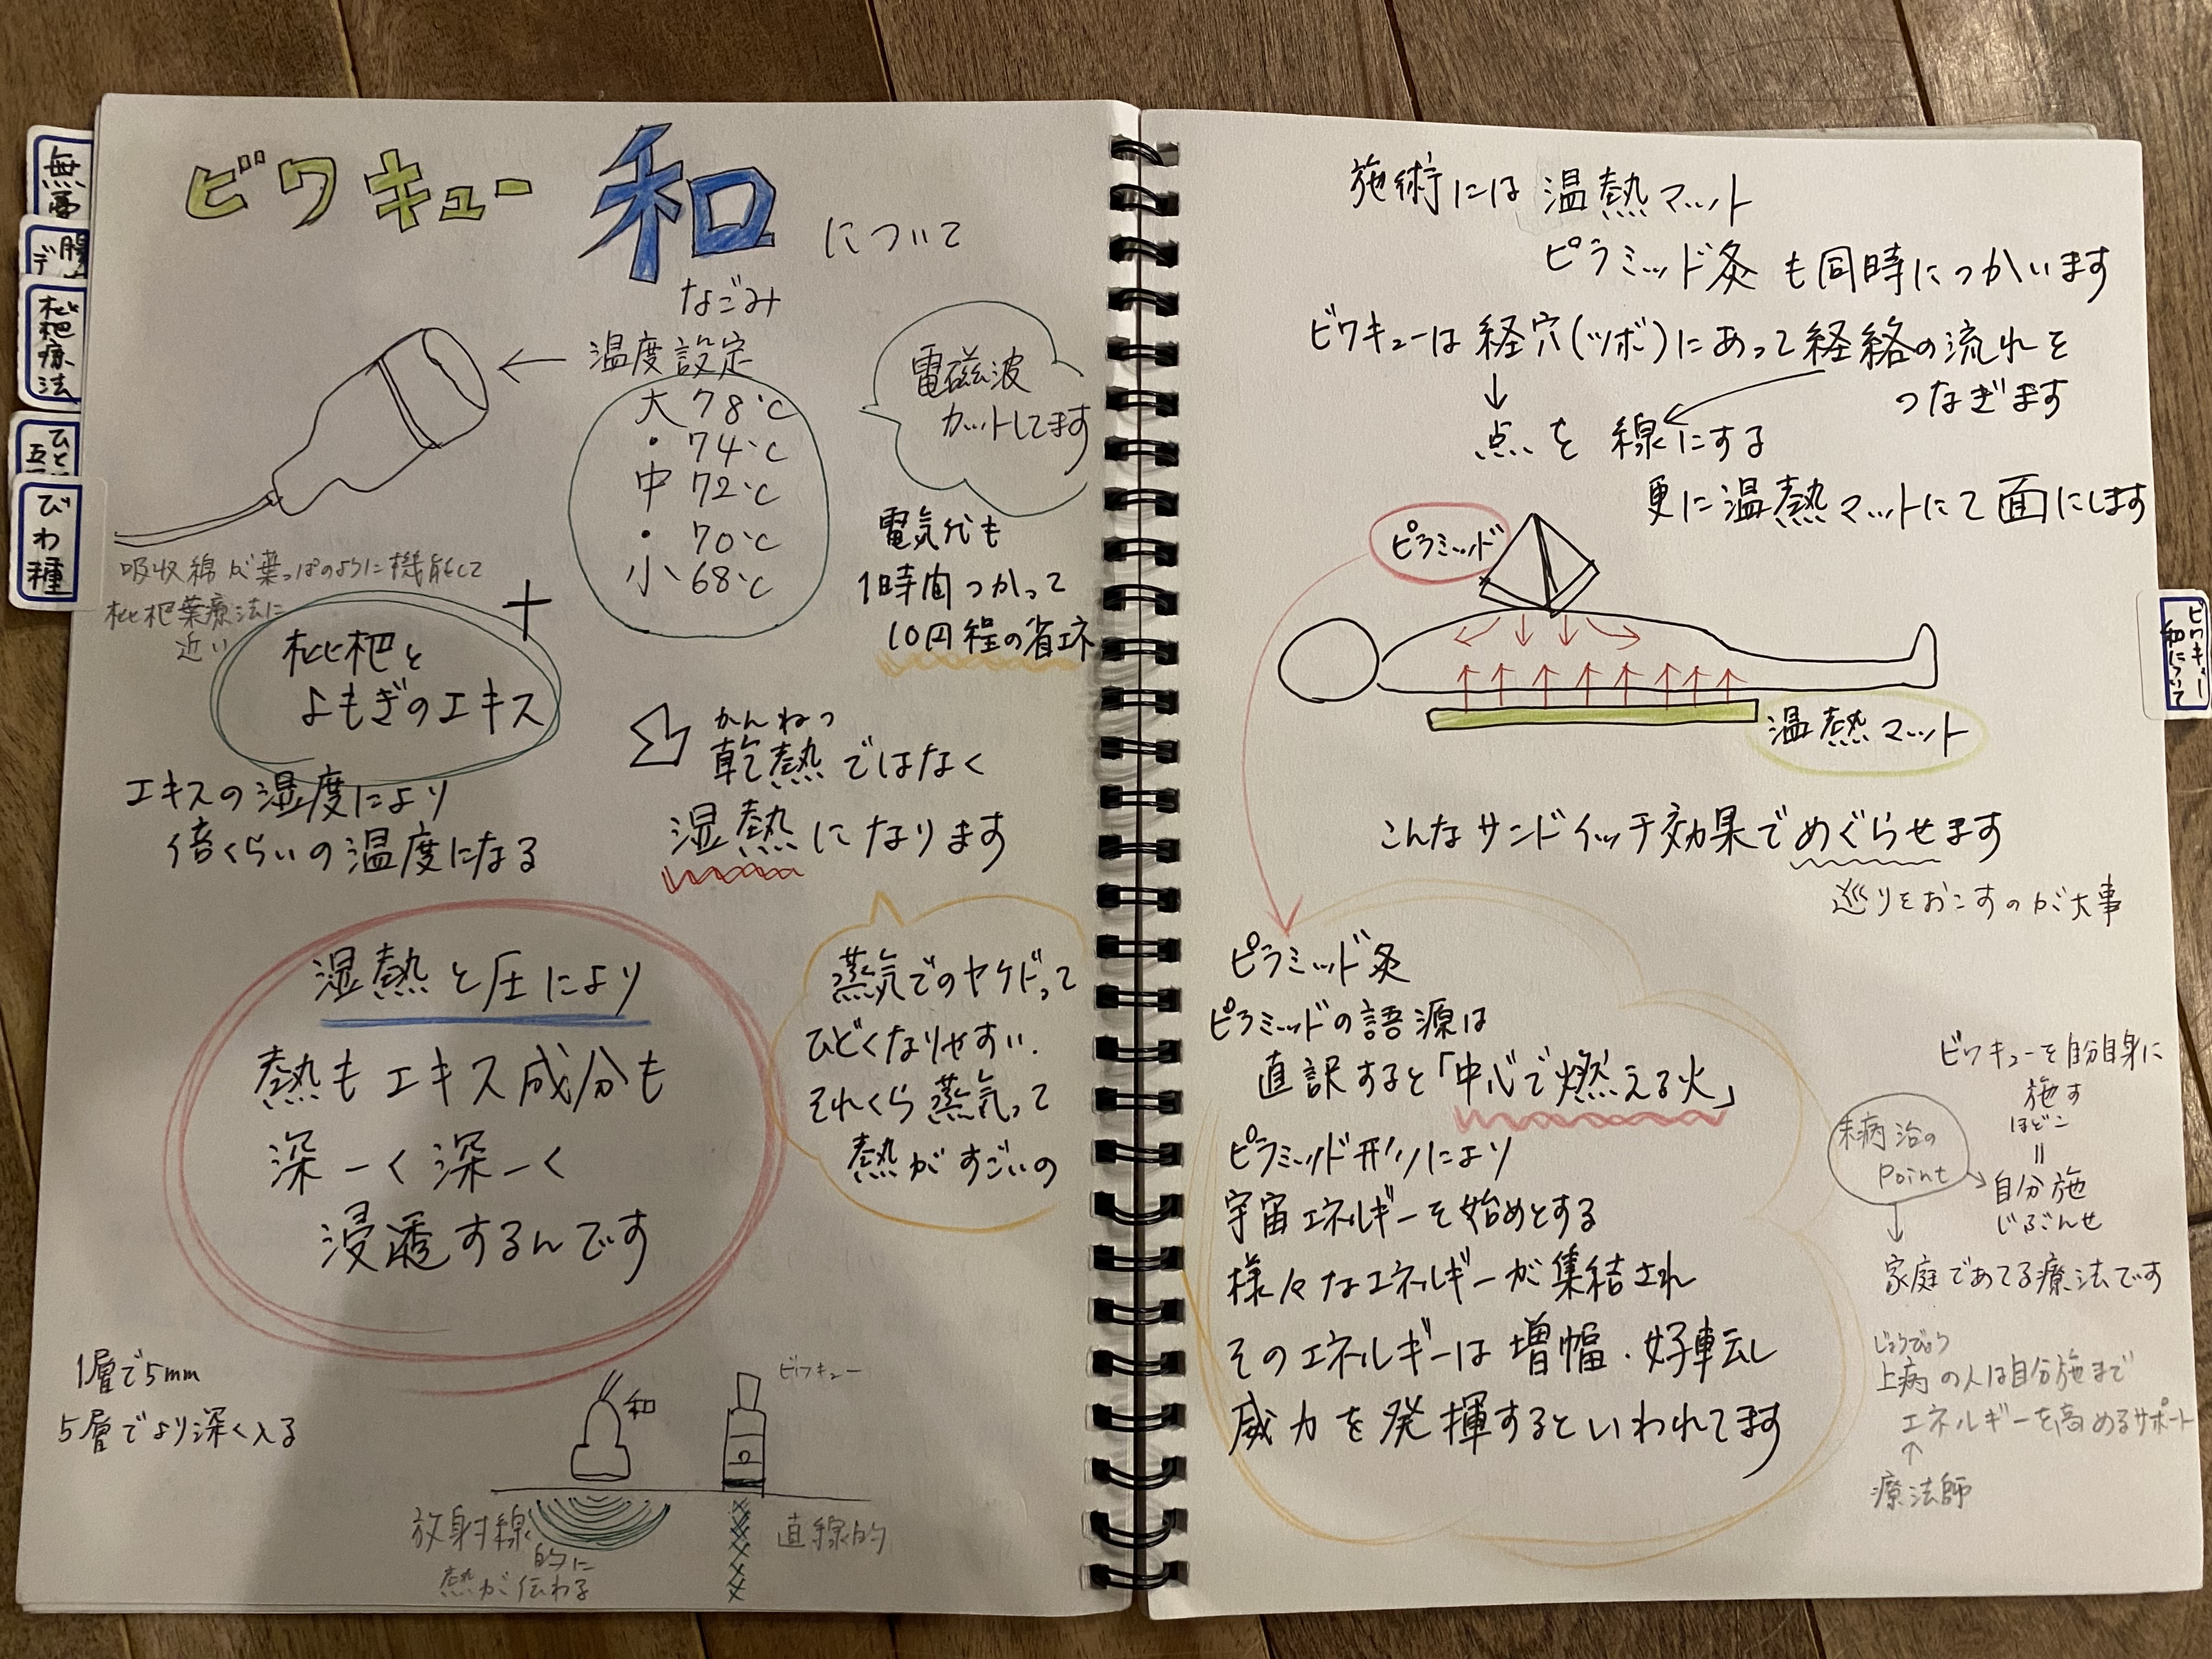 ビワキュー 和 について
なごみ
温度設定
大 78℃
・ 74℃
中 72℃
・ 70℃
小 68℃
電磁波
カットしてます
電気代も
1時間つかって
10円程の省エネ
吸収綿が葉っぱのように機能して
枇杷葉療法に
近い
+
枇杷と
よもぎのエキス
エキスの湿度により
倍くらいの温度になる
かんねつ
乾熱ではなく
湿熱になります
湿熱と圧により
熱もエキス成分も
深ーく深ーく
浸透するんです
蒸気でのヤケドって
ひどくなりやすい.
それくら蒸気って
熱がすごいの
1層で5mm
5層でより深く入る
和
ビワキュー
放射線
的に
熱が伝わる
直線的
施術には 温熱マット
ピラミッド灸 も同時につかいます
ビワキューは経穴(ツボ)にあって経絡の流れを
つなぎます
点を 線にする
更に温熱マットにて面にします
ピラミッド
温熱マット
こんなサンドイッチ効果でめぐらせます
巡りをおこすのが大事
ピラミッド灸
ピラミッドの語源は
直訳すると「中心で燃える火」
ピラミッド形により
宇宙エネルギーを始めとする
様々なエネルギーが集結され
そのエネルギーは増幅・好転し
威力を発揮するといわれてます
ビワキューを自分自身に
施す
ほどこ
=
自分施
じぶんせ
未病治の
Point
家庭であてる療法です
じょうびょう
上病の人は自分施まで
エネルギーを高めるサポート
療法師
枇杷療法
びわ種
ビワキュー
和について